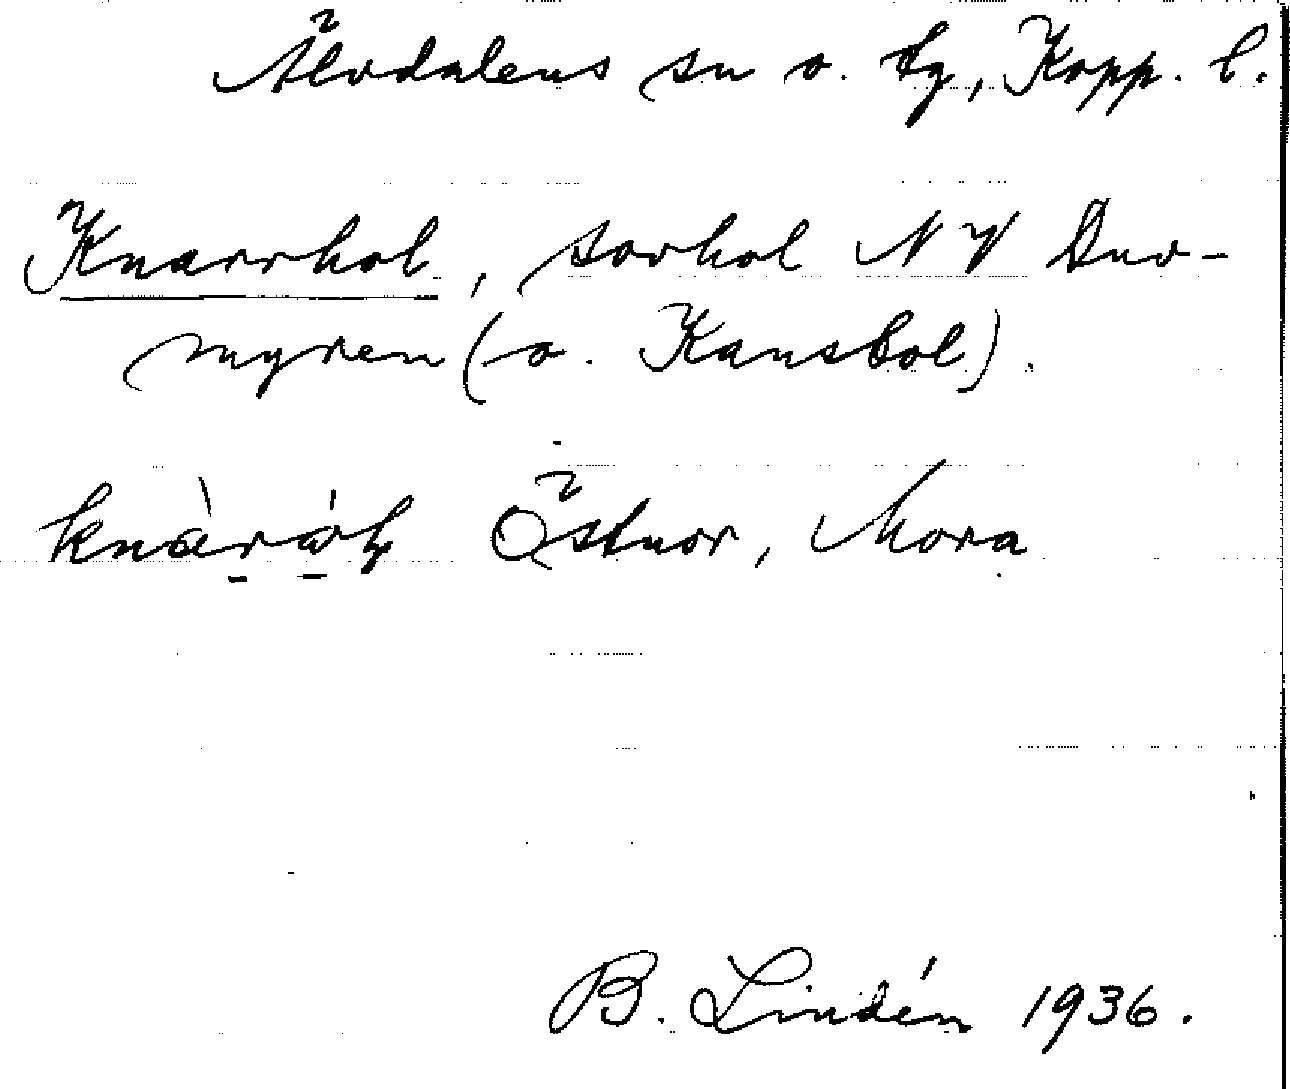 Älvdalens sn o. tg, Kopp. l.
Knarrhol, torhol NV Duv-
myren (o. Kansbol).
knàrọ́ḷ Östnor, Mora
B. Lindén 1936.